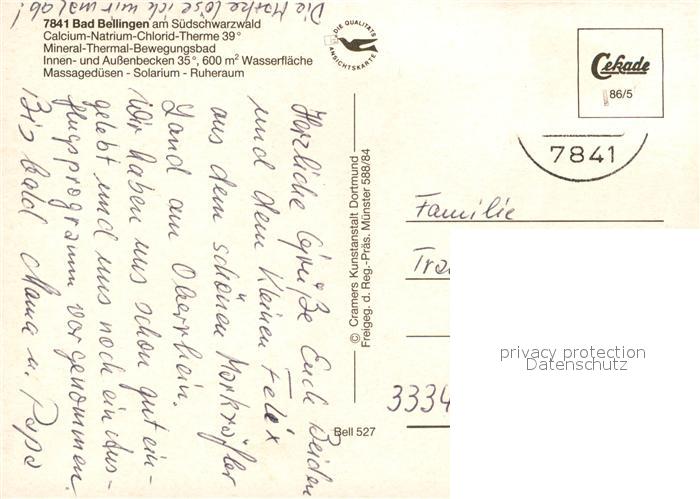 Die Marke löse ich mir mal ab!
7841 Bad Bellingen am Südschwarzwald
Calcium-Natrium-Chlorid-Therme 39°
Mineral-Thermal-Bewegungsbad
Innen- und Außenbecken 35°, 600 m² Wasserfläche
Massagedüsen - Solarium - Ruheraum
DIE QUALITÄTS
ANSICHTSKARTE
Cekade
86/5
7841
Herzliche Grüße Euch Beiden
und dem kleinen Felix
aus dem schönen Markgräfler
Land am Oberrhein.
Wir haben uns schon gut ein-
gelebt und uns noch ein Aus-
flugsprogramm vorgenommen.
Bis bald Mama u. Papa
© Cramers Kunstanstalt Dortmund
Freigeg. d. Reg.-Präs. Münster 588/84
Bell 527
Familie
3334
privacy protection
Datenschutz